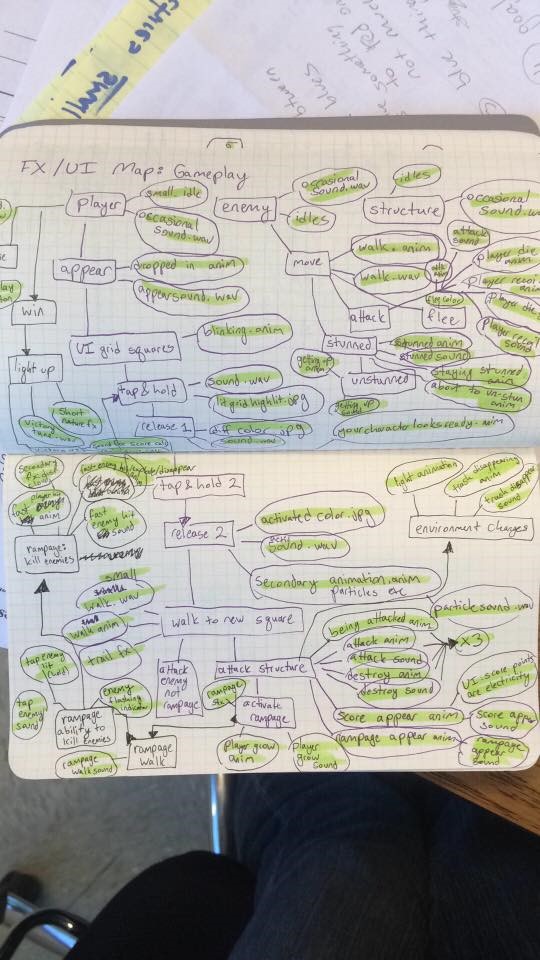 FX / UI Map: Gameplay
player
small idle
occasional
sound.wav
enemy
occasional
sound.wav
idles
structure
idles
occasional
sound.wav
appear
dropped in anim
appearsound.wav
move
walk.anim
walk.wav
attack
sound
attack
flee
player die
anim
player recoil
anim
player die
player recoil
sound
win
light up
victory
short
UI grid squares
blinking.anim
stunned
stunned anim
stunned sound
staying stunned
anim
about to
un-stun
anim
getting up
anim
unstunned
getting up
sound
your character looks ready.anim
tap & hold
sound.wav
lit grid highlit.jpg
release 1
diff color.jpg
sound.wav
tap & hold 2
release 2
activated color.jpg
sound.wav
secondary animation.anim
particles etc
particlesound.wav
fight animation
truck disappearing
anim
truck disappear
sound
environment changes
secondary
sound
fast
anim
fast
enemy hit
sound
rampage:
kill enemies
small
walk.wav
walk anim
trail fx
walk to new square
attack
enemy
not
rampage
attack structure
being attacked anim
attack anim
attack sound
destroy anim
destroy sound
x3
UI-score points
are electricity
score appear anim
score appear
sound
rampage appear anim
rampage
appear
sound
rampage
activate
rampage
player grow
anim
player grow
sound
tap enemy
tap
enemy
sound
enemy
flashing
indicator
rampage
ability to
kill enemies
rampage
walk
rampage
walk sound
goal
blue
something
to
not
blues
small